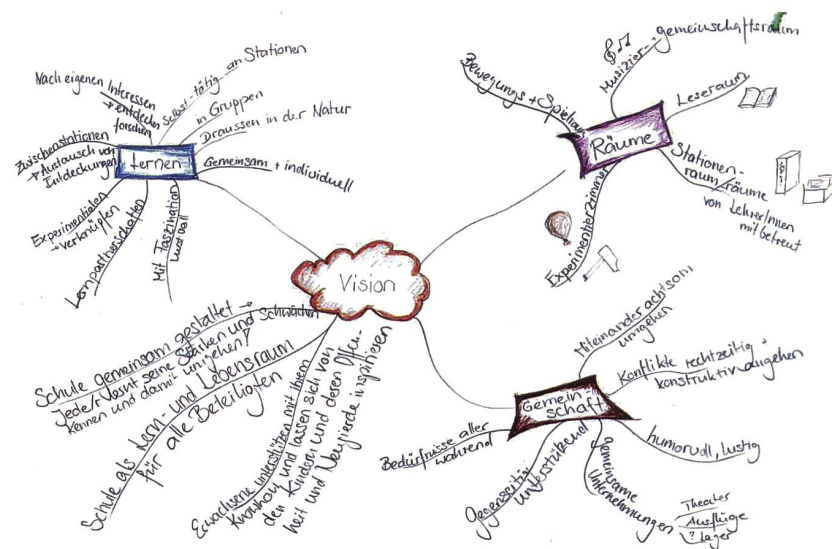 Vision
Lernen
Nach eigenen Interessen
→ entdecken
forschen
Selbst-tätig an Stationen
in Gruppen
Draussen in der Natur
Gemeinsam + individuell
Zwischenstationen
→ Austausch von
Entdeckungen
Experimentieren
→ verknüpfen
Lernpartnerschaften
Mit Faszination
lustvoll
Räume
Bewegungs + Spielraum
Musizier- + gemeinschaftsraum
Leseraum
Stationen-
raum/räume
von LehrerInnen
mitbetreut
Experimentierzimmer
Gemein-
schaft
Miteinander achtsam
umgehen
Konflikte rechtzeitig +
konstruktiv angehen
humorvoll, lustig
gemeinsame
Unternehmungen
Theater
Ausflüge
? Lager
Gegenseitig
unterstützend
Bedürfnisse aller
während
Schule gemeinsam gestaltet →
Jede/r lernt seine Stärken und Schwächen
kennen und damit umgehen!
Schule als Lern- und Lebensraum
für alle Beteiligten
Erwachsene unterstützen mit ihrem
Knowhow und lassen sich von
den Kindern und deren Offen-
heit und Neugierde inspirieren